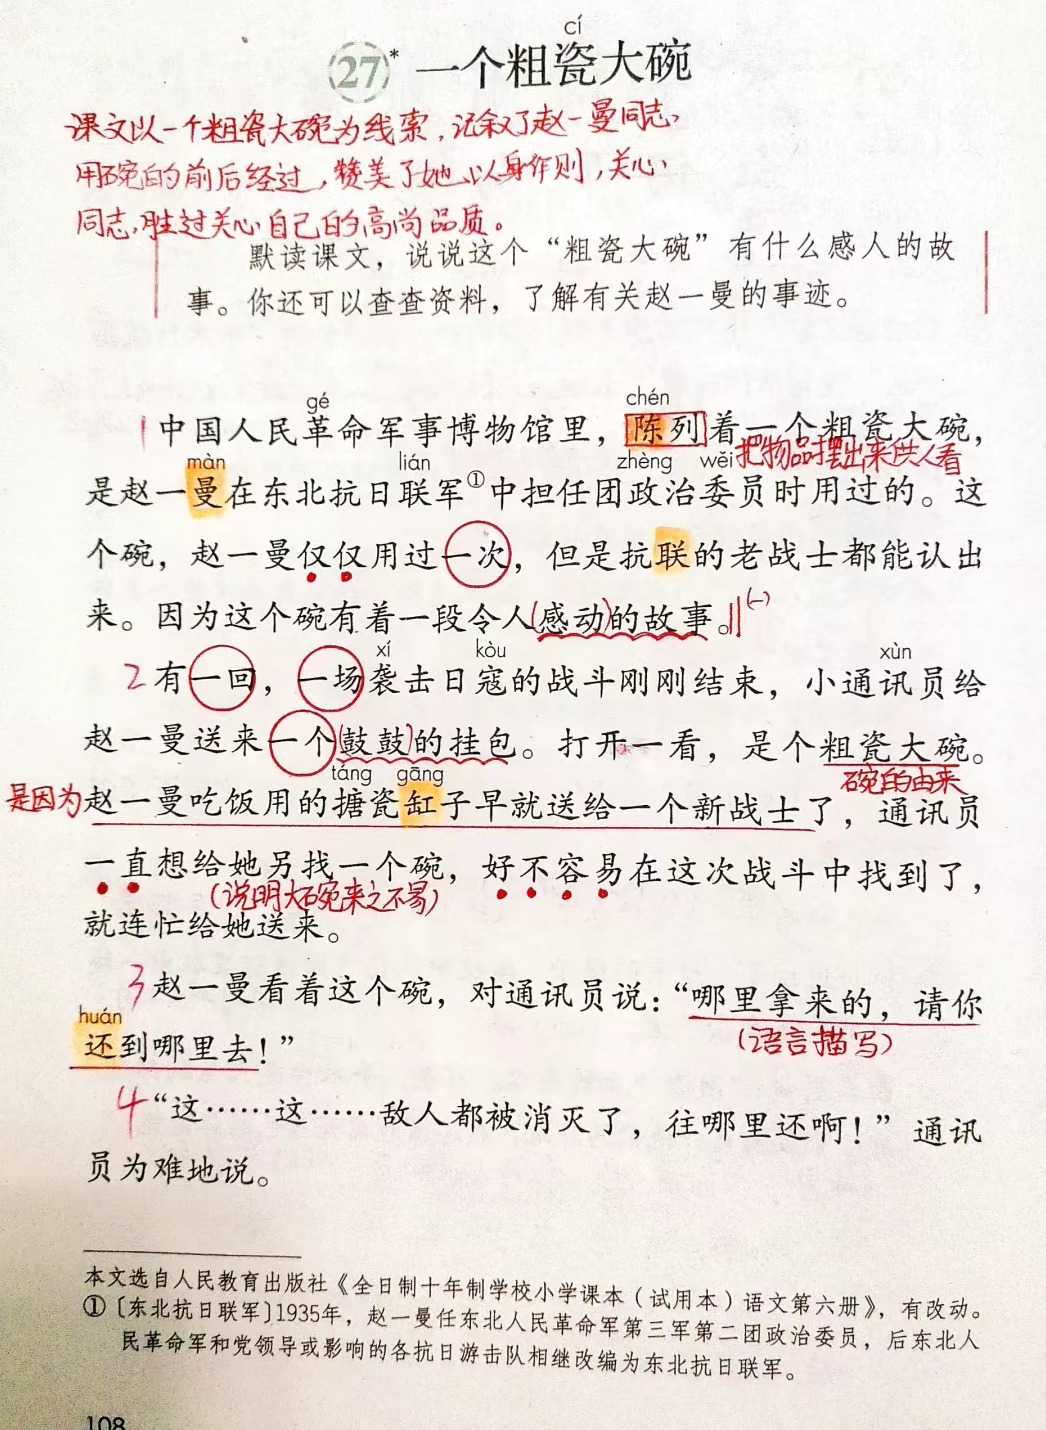 cí
27* 一个粗瓷大碗
课文以一个粗瓷大碗为线索，记叙了赵一曼同志
用碗的前后经过，赞美了她以身作则，关心
同志，胜过关心自己的高尚品质。
默读课文，说说这个“粗瓷大碗”有什么感人的故
事。你还可以查查资料，了解有关赵一曼的事迹。
gé chén
1 中国人民革命军事博物馆里，陈列着一个粗瓷大碗，
把物品摆出来供人看
màn lián zhèng wěi
是赵一曼在东北抗日联军①中担任团政治委员时用过的。这
个碗，赵一曼仅仅用过一次，但是抗联的老战士都能认出
来。因为这个碗有着一段令人(感动)的故事。‖(一)
xí kòu xùn
2 有一回，一场袭击日寇的战斗刚刚结束，小通讯员给
赵一曼送来一个(鼓鼓)的挂包。打开一看，是个粗瓷大碗。
碗的由来
táng gāng
是因为 赵一曼吃饭用的搪瓷缸子早就送给一个新战士了，通讯员
一直想给她另找一个碗，好不容易在这次战斗中找到了，
(说明大碗来之不易)
就连忙给她送来。
3 赵一曼看着这个碗，对通讯员说：“哪里拿来的，请你
huán
(语言描写)
还到哪里去！”
4 “这……这……敌人都被消灭了，往哪里还啊！”通讯
员为难地说。
本文选自人民教育出版社《全日制十年制学校小学课本（试用本）语文第六册》，有改动。
①〔东北抗日联军〕1935年，赵一曼任东北人民革命军第三军第二团政治委员，后东北人
民革命军和党领导或影响的各抗日游击队相继改编为东北抗日联军。
108